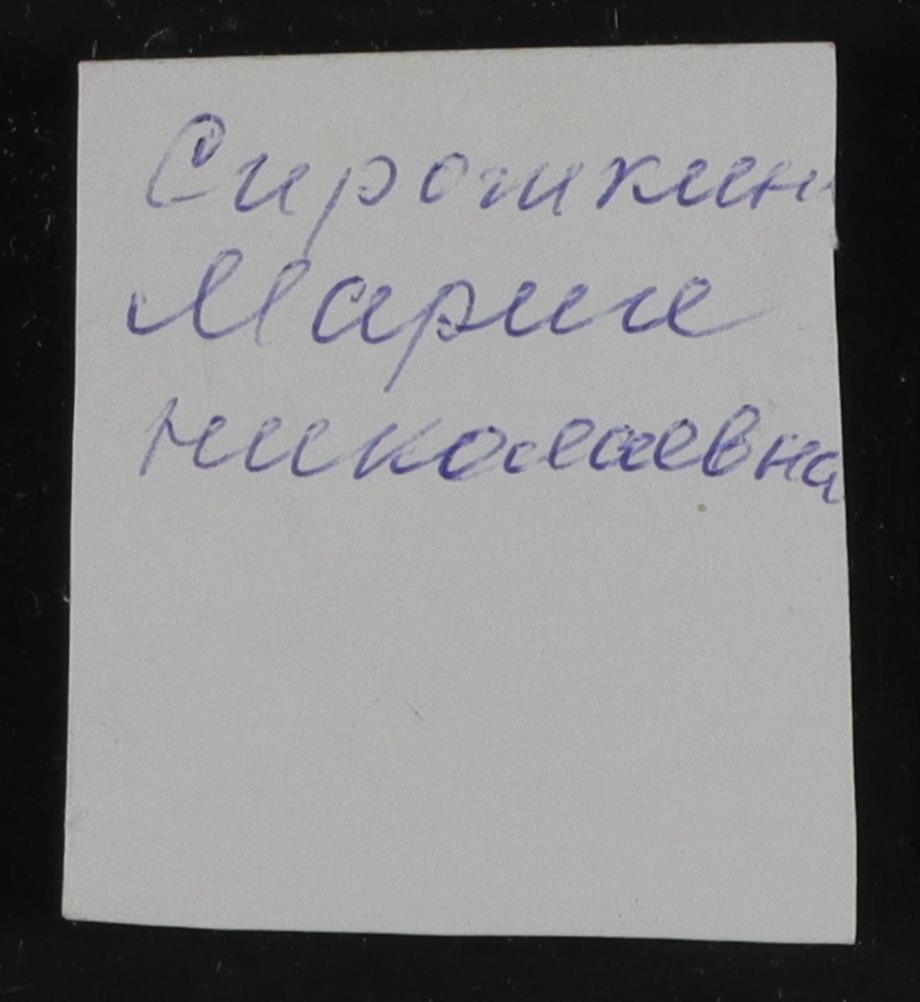 Сироткин
Мария
Николаевна